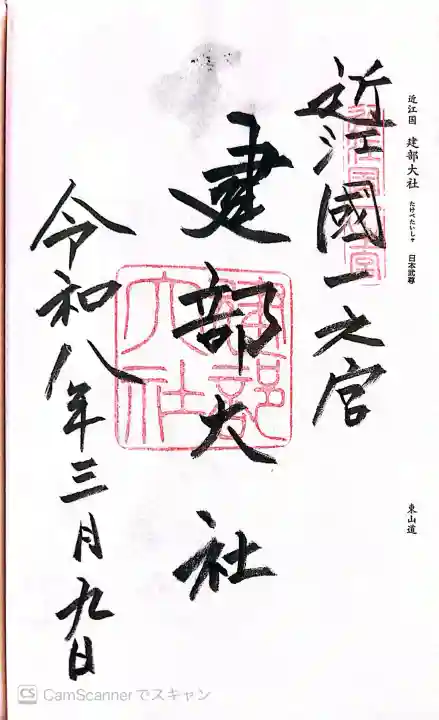 近江国 建部大社 たけべたいしゃ 日本武尊
東山道
近江國一之宮
建部大社
令和八年三月九日
建部大社
CS CamScannerでスキャン